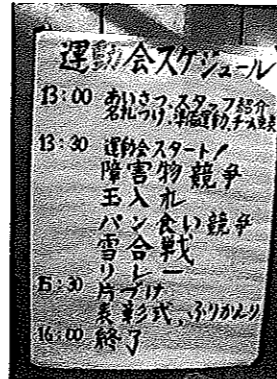 運動会スケジュール
13:00 あいさつ、スタッフ紹介
名札つけ、準備運動、チーム発表
13:30 運動会スタート!
障害物競争
玉入れ
パン食い競争
雪合戦
リレー
15:30 片づけ
表彰式、ふりかえり
16:00 終了